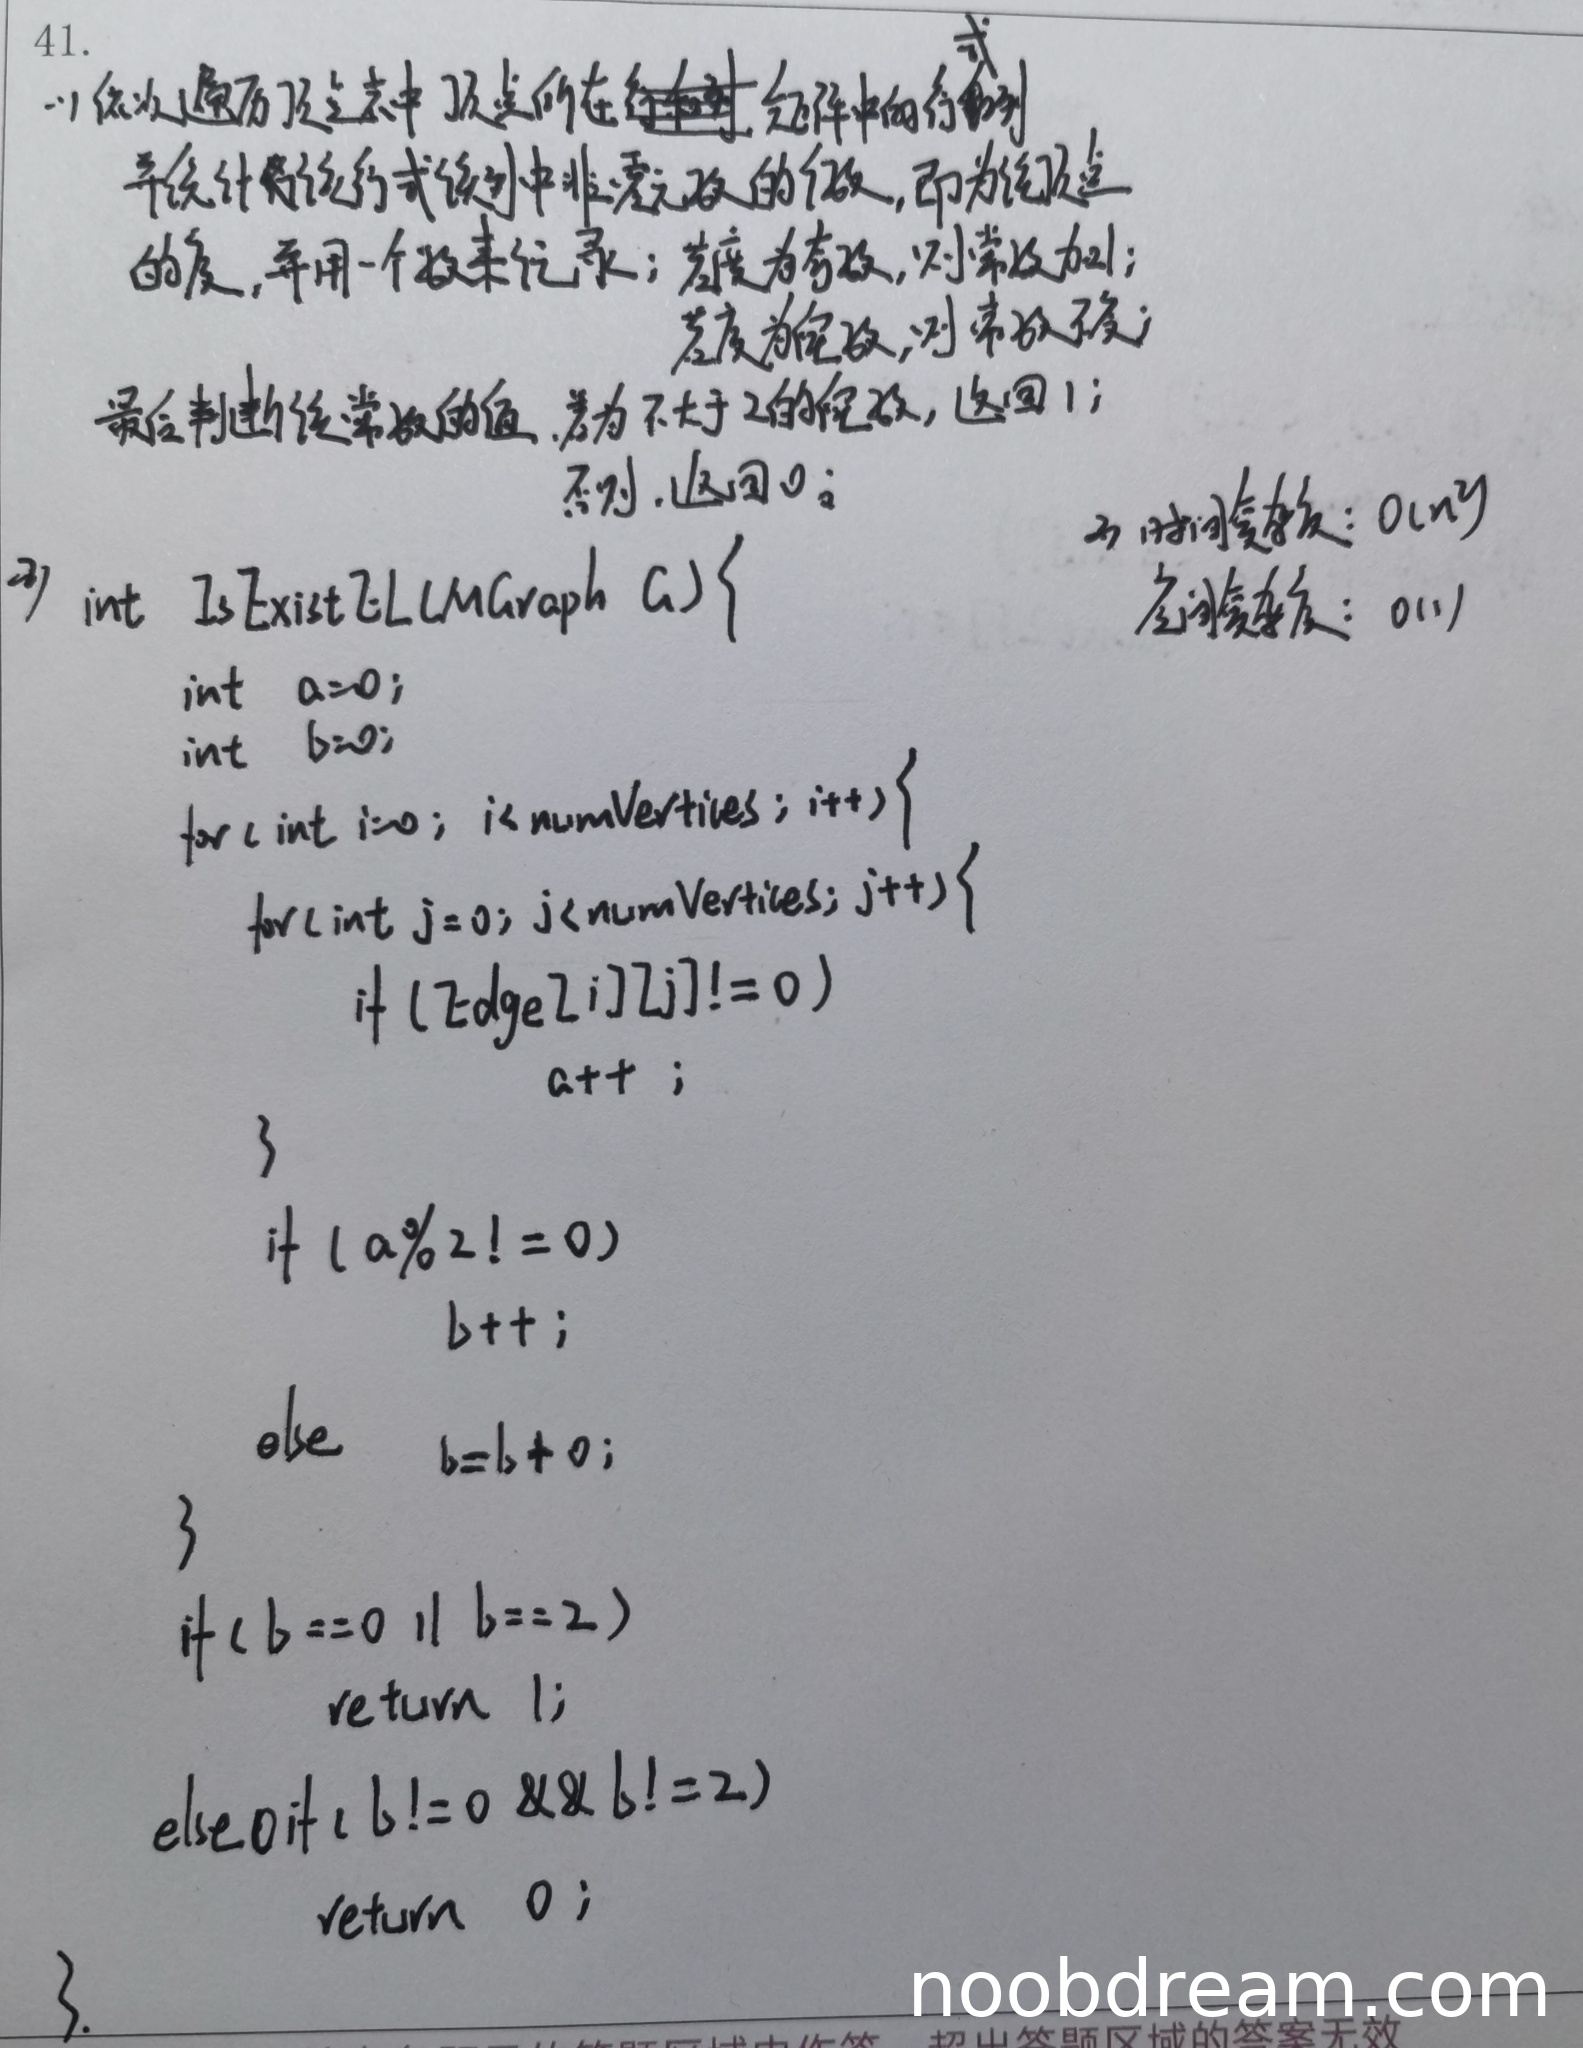 41.
(1) 依次遍历顶点表中顶点所在矩阵中的行或列
并统计该行或该列中非零元数的个数,即为该顶点
的度,并用一个数来记录;若度为奇数,则常数加1;
若度为偶数,则常数不变;
最后判断该常数的值.若为不大于2的偶数,返回1;
否则.返回0;
(3) 时间复杂度: O(n²)
空间复杂度: O(1)
(2) int IsExistEL(MGraph G){
int a=0;
int b=0;
for(int i=0; i<numVertices; i++){
for(int j=0; j<numVertices; j++){
if(Edge[i][j]!=0)
a++ ;
}
if(a%2!=0)
b++;
else b=b+0;
}
if(b==0 || b==2)
return 1;
else if(b!=0 && b!=2)
return 0;
}.
noobdream.com
超出答题区域的答案无效